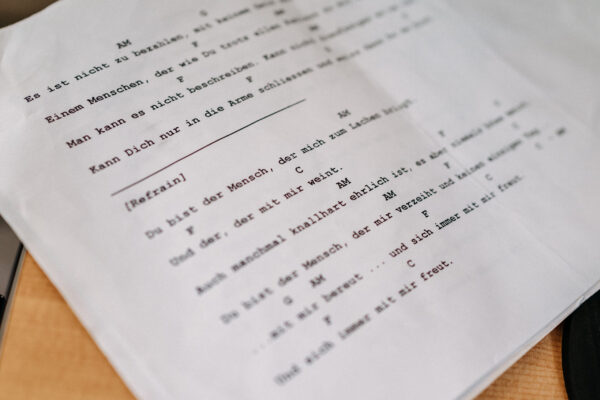 AM G
Es ist nicht zu bezahlen, mit keinem
F F C
Einem Menschen, der wie Du trotz allen
F F
Man kann es nicht beschreiben. Kann nicht
Kann Dich nur in die Arme schliessen und
[Refrain] AM
Du bist der Mensch, der mich zum Lachen bringt
F C
Und der, der mit mir weint.
AM F
Auch manchmal knallhart ehrlich ist, es aber niemals
AM F C
Du bist der Mensch, der mir verzeiht und keinen einzigen Tag
G AM F C
...mit mir bereut ... und sich immer mit mir freut.
F C
Und sich immer mit mir freut.